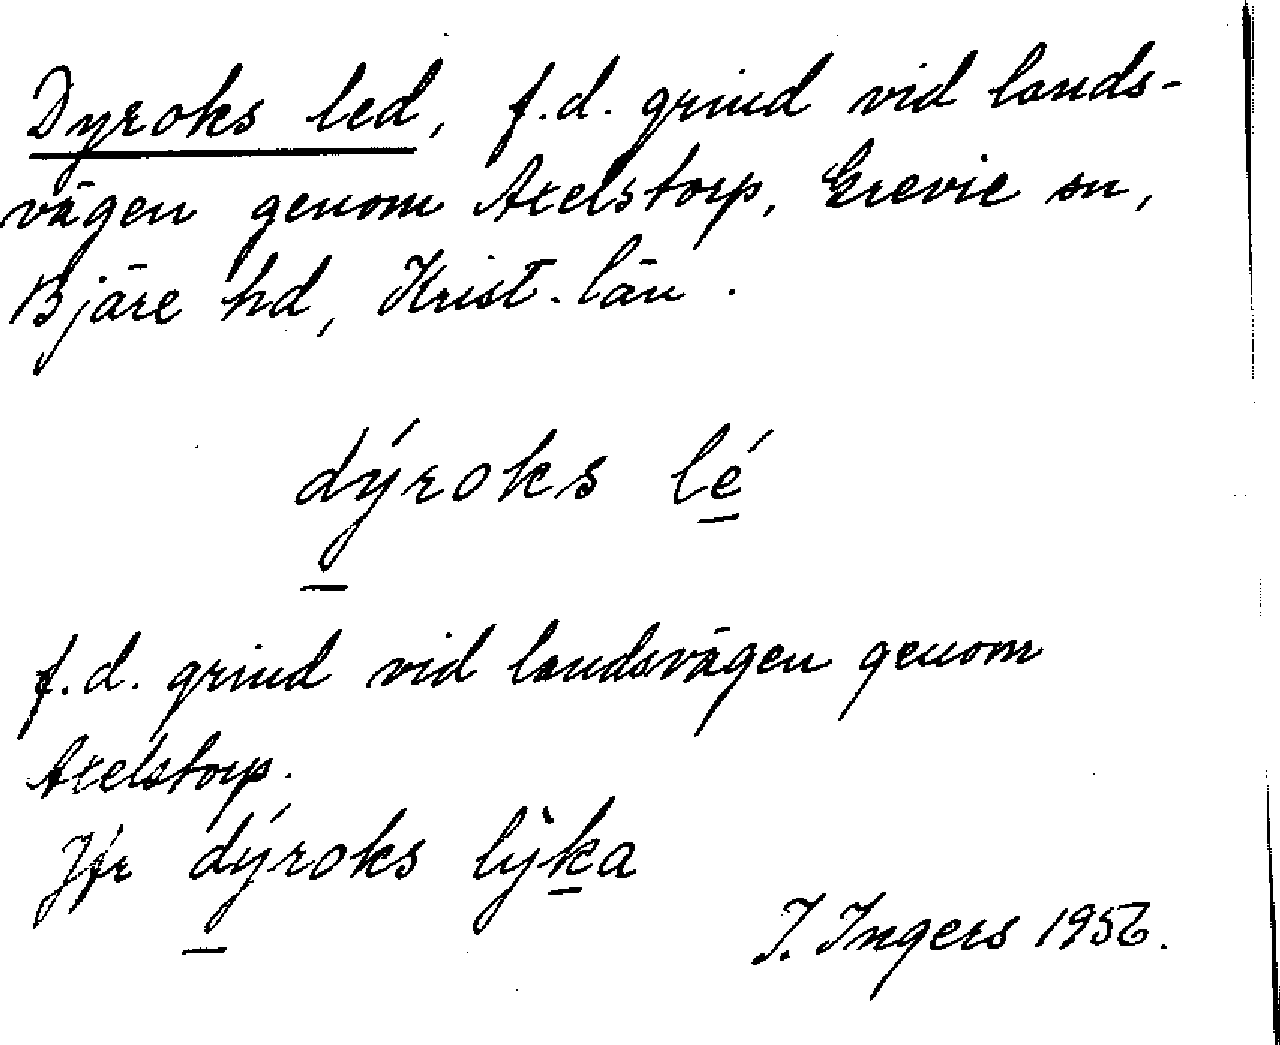 Dyroks led, f.d. grind vid lands-
vägen genom Axelstorp, Grevie sn,
Bjäre hd, Krist. län.
dýroks lé
f.d. grind vid landsvägen genom
Axelstorp.
Jfr dýroks lỳka
I. Ingers 1956.